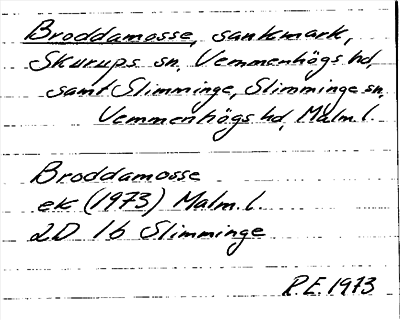 Broddamosse, sankmark,
Skurups sn, Vemmenhögs hd,
samt Slimminge, Slimminge sn,
Vemmenhögs hd, Malm. l.
Broddamosse
ek (1973) Malm. l.
2D 1b Slimminge
R.E. 1973